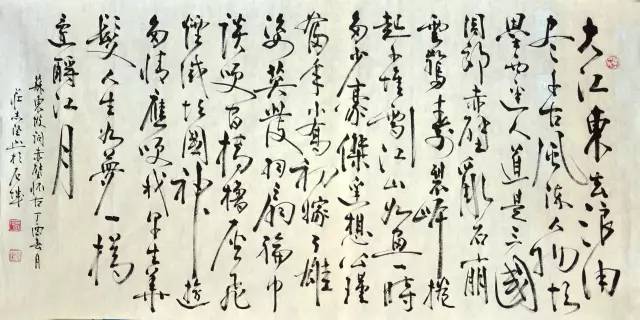 大江東去浪淘
尽千古風流人物故
壘西邊人道是三國
周郎赤壁亂石崩
雲驚濤裂岸捲
起千堆雪江山如畫一時
多少豪傑遥想公瑾
當年小喬初嫁了雄
姿英發羽扇綸巾
談笑間檣櫓灰飛
煙滅故國神遊
多情應笑我早生華
髮人生如夢一樽
還酹江月
蘇東坡詞赤壁懷古丁酉春月